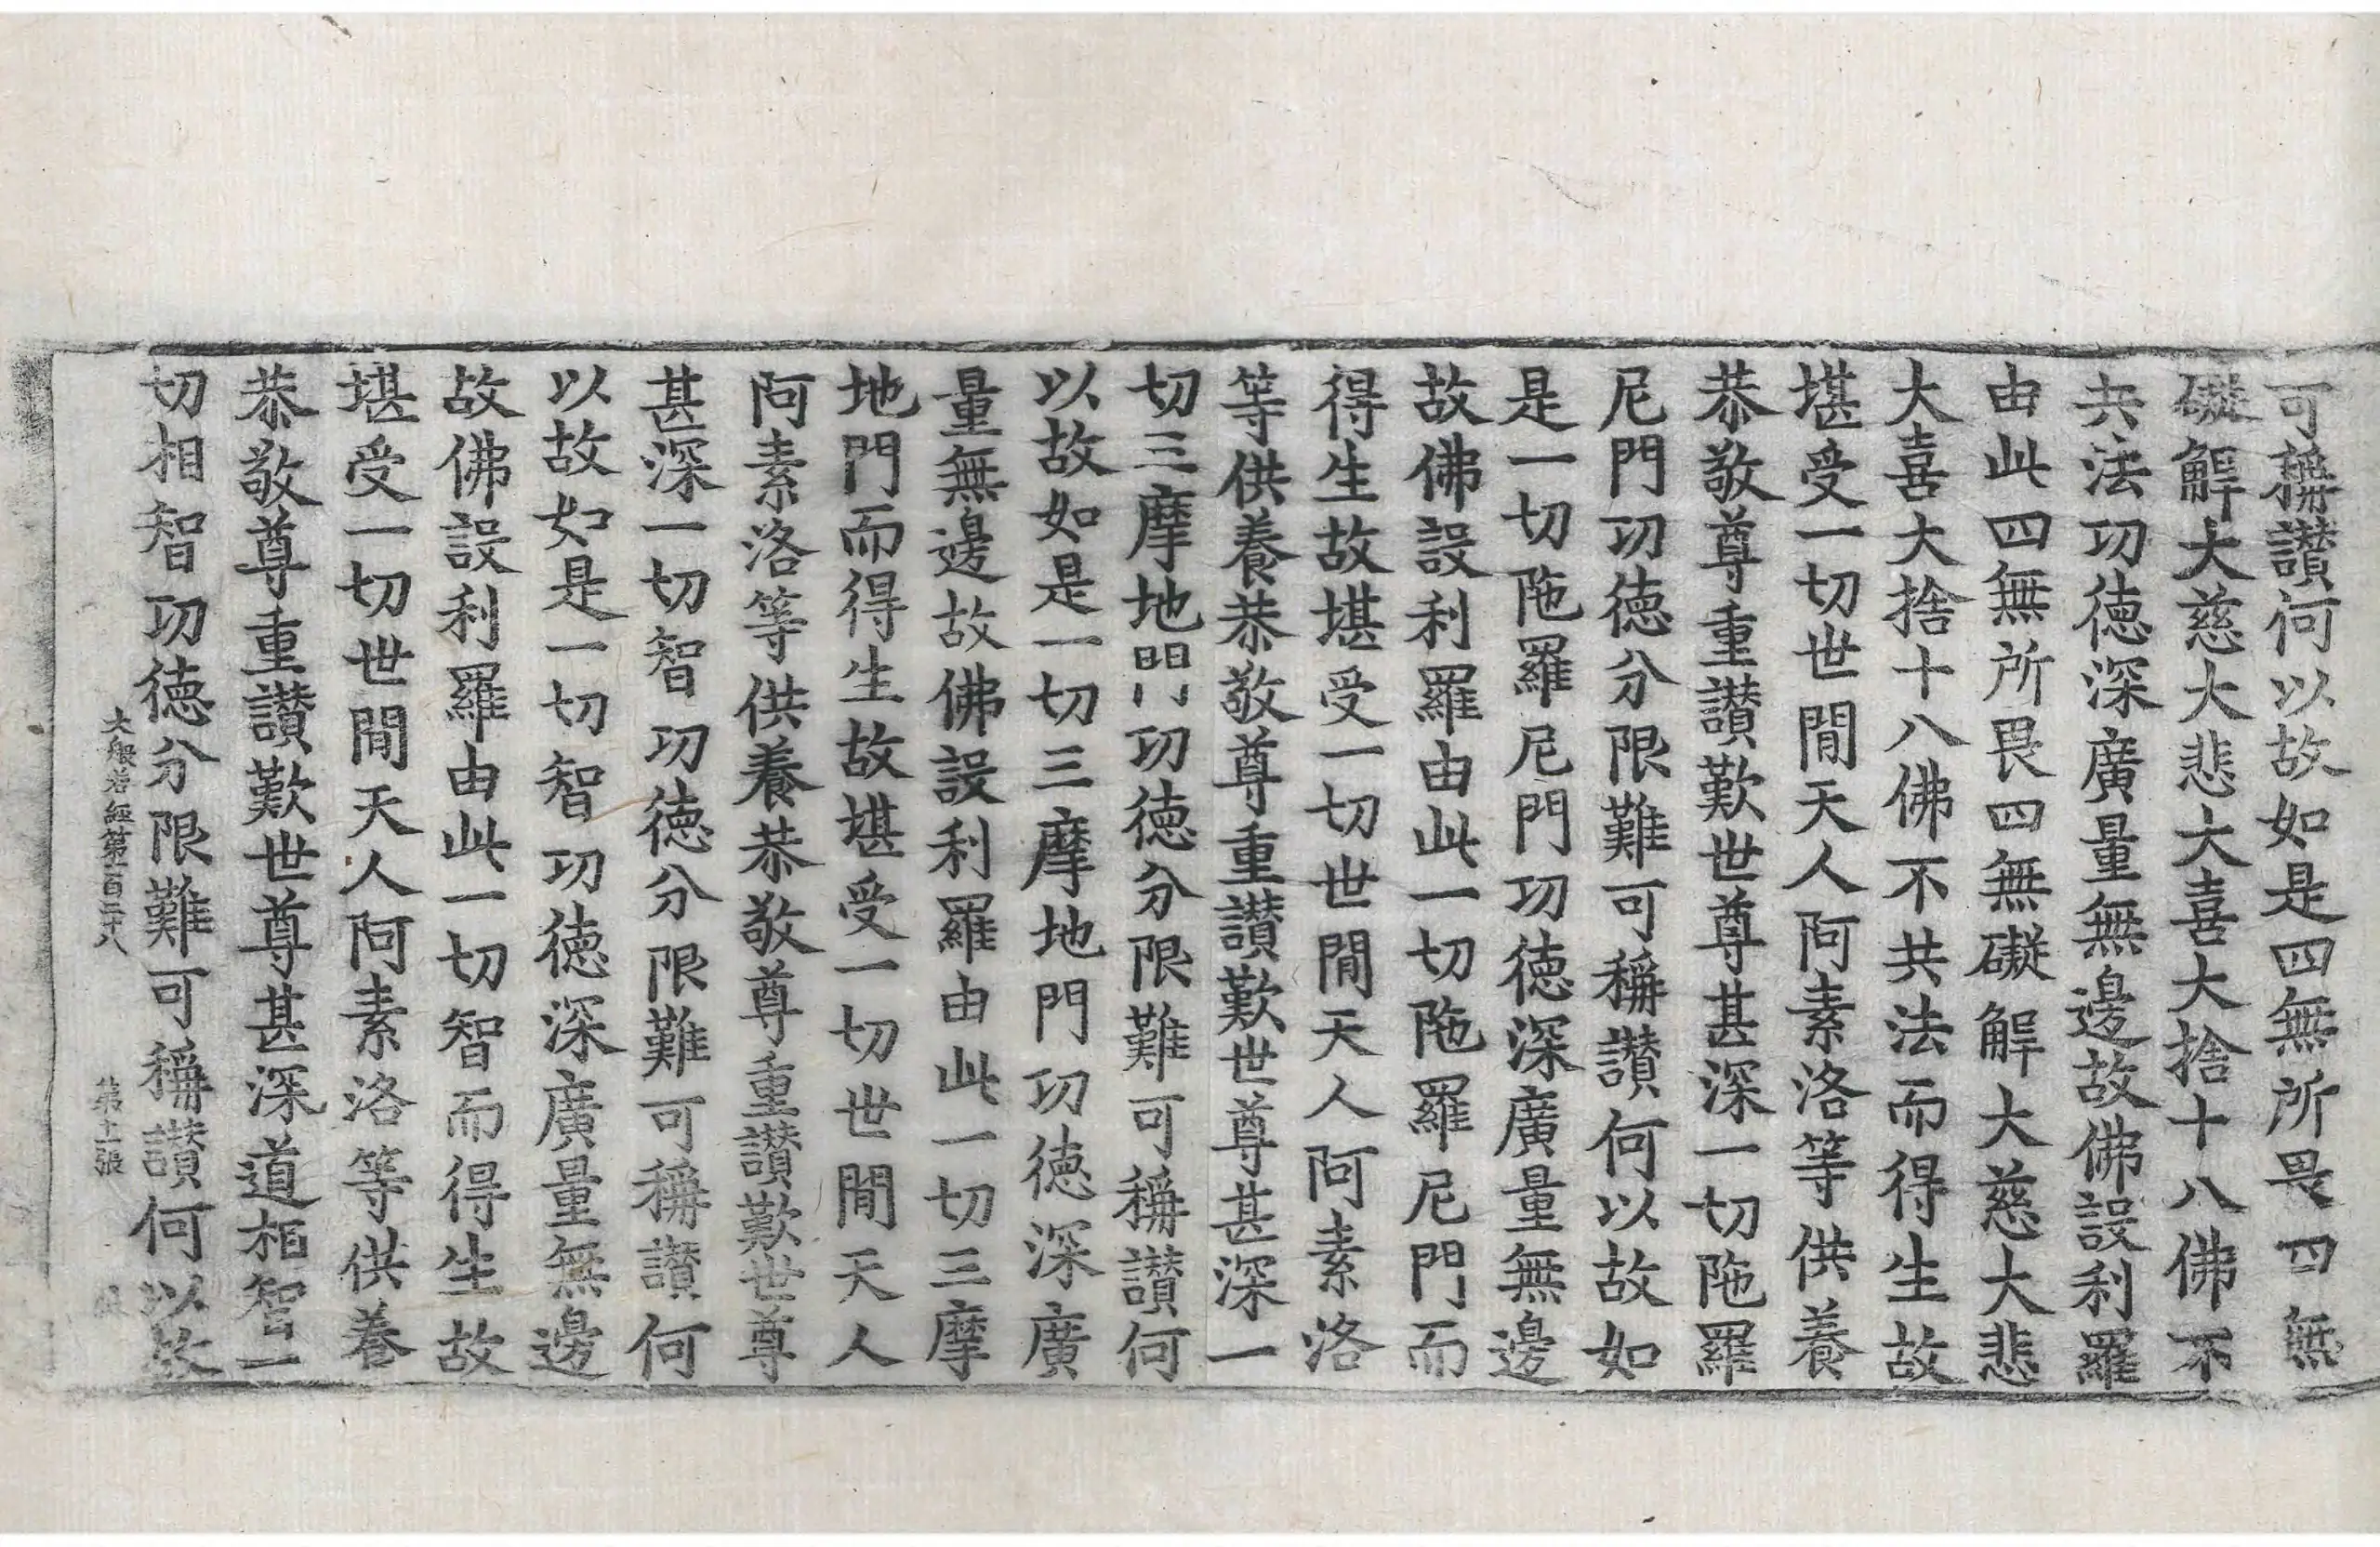 可稱讃何以故如是四無所畏四無
礙解大慈大悲大喜大捨十八佛不
共法功徳深廣量無邊故佛設利羅
由此四無所畏四無礙解大慈大悲
大喜大捨十八佛不共法而得生故
堪受一切世閒天人阿素洛等供養
恭敬尊重讃歎世尊甚深一切陁羅
尼門功徳分限難可稱讃何以故如
是一切陁羅尼門功徳深廣量無邊
故佛設利羅由此一切陁羅尼門而
得生故堪受一切世閒天人阿素洛
等供養恭敬尊重讃歎世尊甚深一
切三摩地門功徳分限難可稱讃何
以故如是一切三摩地門功徳深廣
量無邊故佛設利羅由此一切三摩
地門而得生故堪受一切世閒天人
阿素洛等供養恭敬尊重讃歎世尊
甚深一切智功徳分限難可稱讃何
以故如是一切智功徳深廣量無邊
故佛設利羅由此一切智而得生故
堪受一切世閒天人阿素洛等供養
恭敬尊重讃歎世尊甚深道相智一
切相智功徳分限難可稱讃何以故
大般若經第一百二十八 第十二張